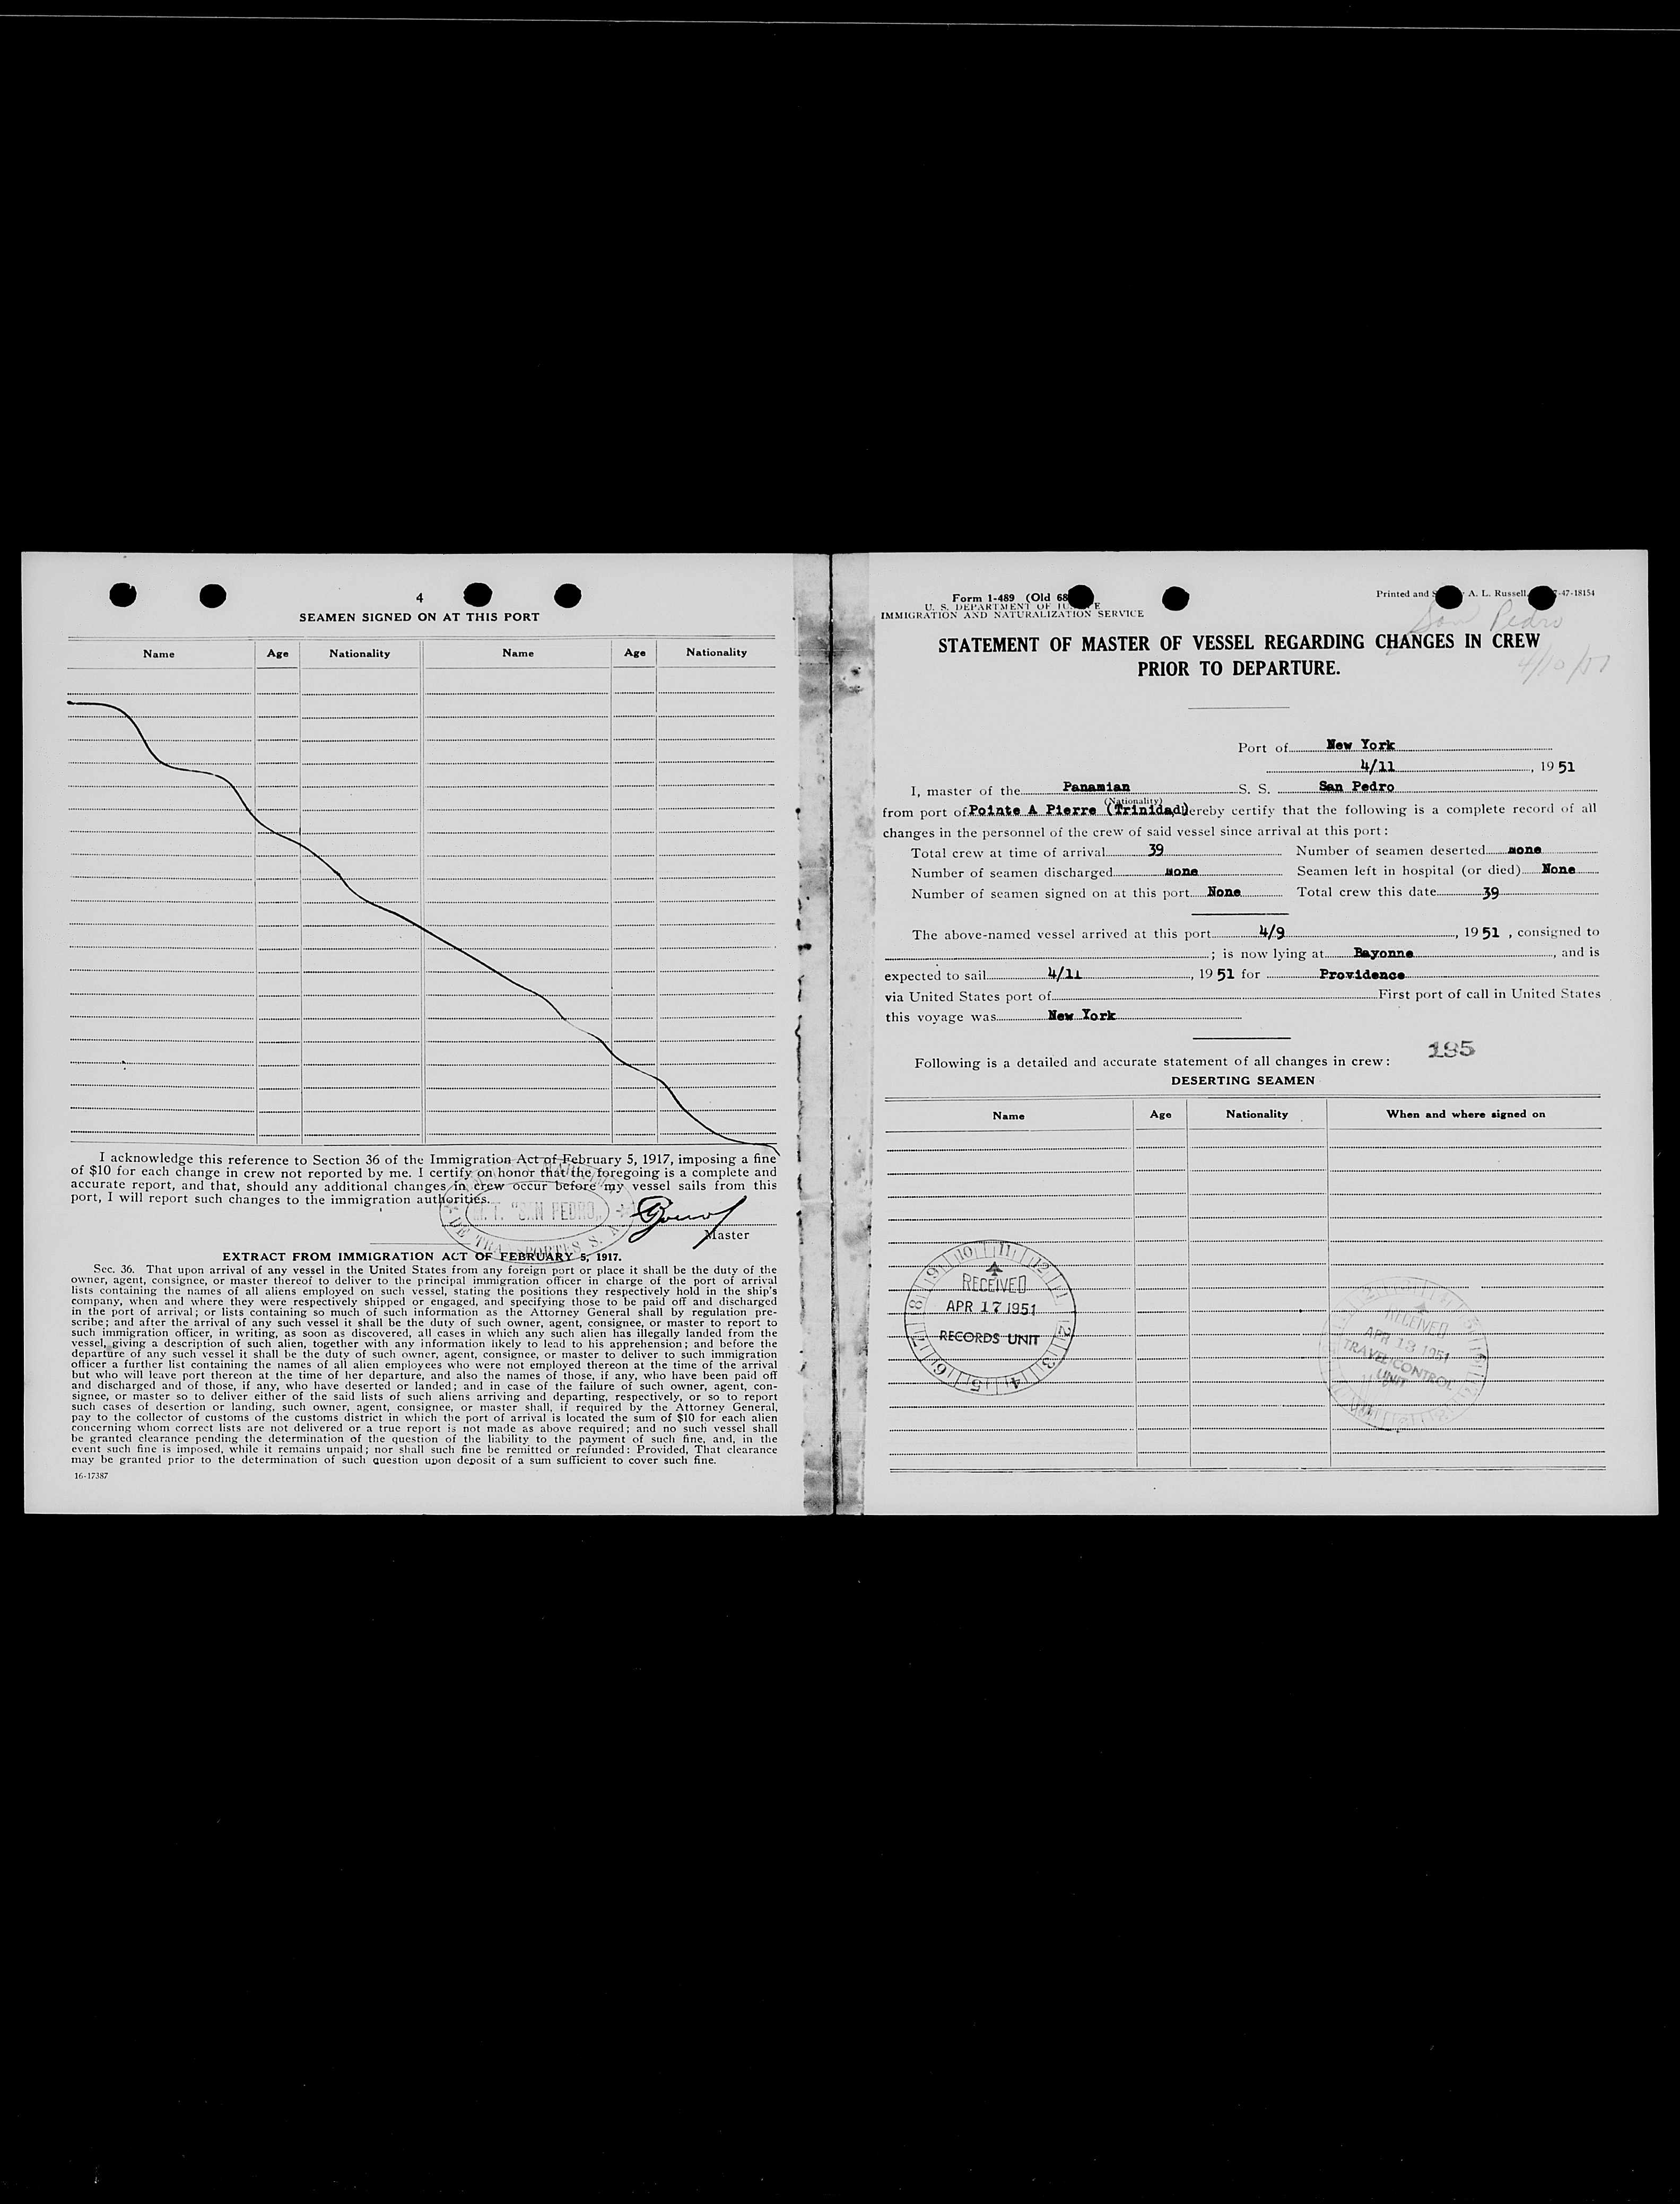 4
SEAMEN SIGNED ON AT THIS PORT
Name Age Nationality Name Age Nationality
I acknowledge this reference to Section 36 of the Immigration Act of February 5, 1917, imposing a fine
of $10 for each change in crew not reported by me. I certify on honor that the foregoing is a complete and
accurate report, and that, should any additional changes in crew occur before my vessel sails from this
port, I will report such changes to the immigration authorities.
"SAN PEDRO"
Master
EXTRACT FROM IMMIGRATION ACT OF FEBRUARY 5, 1917.
Sec. 36. That upon arrival of any vessel in the United States from any foreign port or place it shall be the duty of the
owner, agent, consignee, or master thereof to deliver to the principal immigration officer in charge of the port of arrival
lists containing the names of all aliens employed on such vessel, stating the positions they respectively hold in the ship's
company, when and where they were respectively shipped or engaged, and specifying those to be paid off and discharged
in the port of arrival; or lists containing so much of such information as the Attorney General shall by regulation pre-
scribe; and after the arrival of any such vessel it shall be the duty of such owner, agent, consignee, or master to report to
such immigration officer, in writing, as soon as discovered, all cases in which any such alien has illegally landed from the
vessel, giving a description of such alien, together with any information likely to lead to his apprehension; and before the
departure of any such vessel it shall be the duty of such owner, agent, consignee, or master to deliver to such immigration
officer a further list containing the names of all alien employees who were not employed thereon at the time of the arrival
but who will leave port thereon at the time of her departure, and also the names of those, if any, who have been paid off
and discharged and of those, if any, who have deserted or landed; and in case of the failure of such owner, agent, con-
signee, or master so to deliver either of the said lists of such aliens arriving and departing, respectively, or so to report
such cases of desertion or landing, such owner, agent, consignee, or master shall, if required by the Attorney General,
pay to the collector of customs of the customs district in which the port of arrival is located the sum of $10 for each alien
concerning whom correct lists are not delivered or a true report is not made as above required; and no such vessel shall
be granted clearance pending the determination of the question of the liability to the payment of such fine, and, in the
event such fine is imposed, while it remains unpaid; nor shall such fine be remitted or refunded: Provided, That clearance
may be granted prior to the determination of such question upon deposit of a sum sufficient to cover such fine.
16-17387
Form 1-489 (Old 68
U. S. DEPARTMENT OF
IMMIGRATION AND NATURALIZATION SERVICE
Printed and A. L. Russell 47-18154
San Pedro
STATEMENT OF MASTER OF VESSEL REGARDING CHANGES IN CREW
PRIOR TO DEPARTURE.
4/10/51
Port of New York
4/11, 1951
I, master of the Panamian S. S. San Pedro
(Nationality)
from port of Pointe A Pierre (Trinidad) hereby certify that the following is a complete record of all
changes in the personnel of the crew of said vessel since arrival at this port:
Total crew at time of arrival 39 Number of seamen deserted none
Number of seamen discharged none Seamen left in hospital (or died) None
Number of seamen signed on at this port None Total crew this date 39
The above-named vessel arrived at this port 4/9, 1951, consigned to
; is now lying at Bayonne, and is
expected to sail 4/11, 1951 for Providence
via United States port of First port of call in United States
this voyage was New York
195
Following is a detailed and accurate statement of all changes in crew:
DESERTING SEAMEN
Name Age Nationality When and where signed on
RECEIVED
APR 17 1951
RECORDS UNIT
RECEIVED
APR 13 1951
TRAVEL CONTROL
UNIT